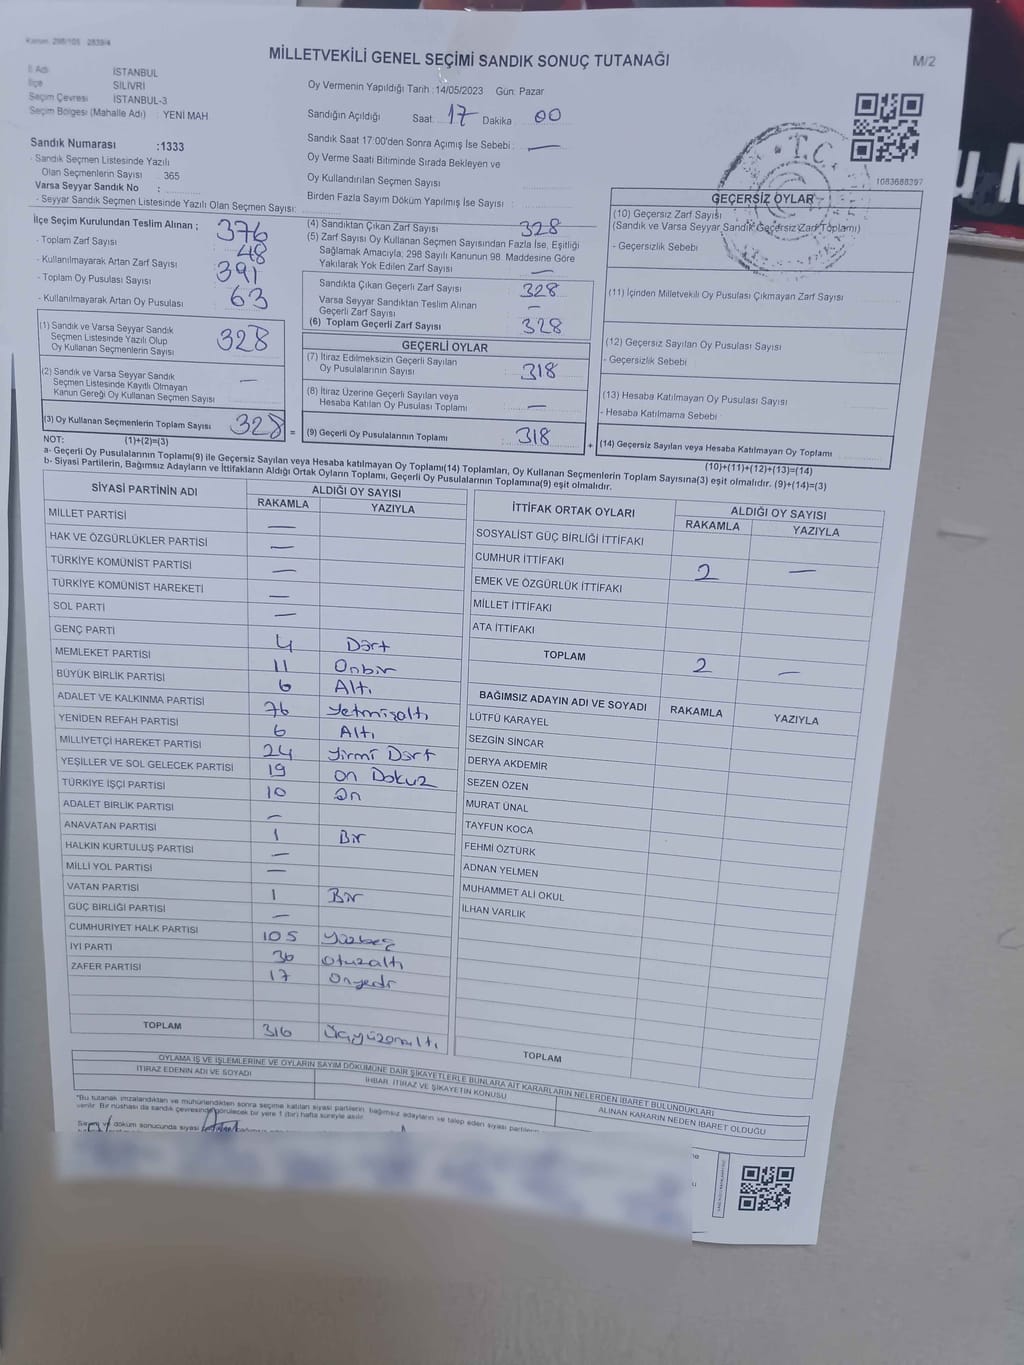 Kanun: 298/105 2839/4
MİLLETVEKİLİ GENEL SEÇİMİ SANDIK SONUÇ TUTANAĞI
M/2
İl Adı İSTANBUL
İlçe SİLİVRİ
Seçim Çevresi İSTANBUL-3
Seçim Bölgesi (Mahalle Adı) : YENİ MAH
Oy Vermenin Yapıldığı Tarih :14/05/2023 Gün: Pazar
Sandığın Açıldığı Saat: 17 Dakika 00
Sandık Saat 17:00'den Sonra Açımış İse Sebebi: —
Oy Verme Saati Bitiminde Sırada Bekleyen ve
Oy Kullandırılan Seçmen Sayısı
Birden Fazla Sayım Döküm Yapılmış İse Sayısı :
Sandık Numarası :1333
- Sandık Seçmen Listesinde Yazılı
Olan Seçmenlerin Sayısı : 365
Varsa Seyyar Sandık No :
- Seyyar Sandık Seçmen Listesinde Yazılı Olan Seçmen Sayısı:
T.C.
1083688397
İlçe Seçim Kurulundan Teslim Alınan ;
- Toplam Zarf Sayısı 376
- Kullanılmayarak Artan Zarf Sayısı 48
- Toplam Oy Pusulası Sayısı 391
- Kullanılmayarak Artan Oy Pusulası 63
(1) Sandık ve Varsa Seyyar Sandık
Seçmen Listesinde Yazılı Olup
Oy Kullanan Seçmenlerin Sayısı 328
(2) Sandık ve Varsa Seyyar Sandık
Seçmen Listesinde Kayıtlı Olmayan
Kanun Gereği Oy Kullanan Seçmen Sayısı —
(3) Oy Kullanan Seçmenlerin Toplam Sayısı 328
(4) Sandıktan Çıkan Zarf Sayısı 328
(5) Zarf Sayısı Oy Kullanan Seçmen Sayısından Fazla İse, Eşitliği
Sağlamak Amacıyla; 298 Sayılı Kanunun 98. Maddesine Göre
Yakılarak Yok Edilen Zarf Sayısı —
Sandıkta Çıkan Geçerli Zarf Sayısı 328
Varsa Seyyar Sandıktan Teslim Alınan
Geçerli Zarf Sayısı —
(6) Toplam Geçerli Zarf Sayısı 328
GEÇERLİ OYLAR
(7) İtiraz Edilmeksizin Geçerli Sayılan
Oy Pusulalarının Sayısı 318
(8) İtiraz Üzerine Geçerli Sayılan veya
Hesaba Katılan Oy Pusulası Toplamı —
= (9) Geçerli Oy Pusulalarının Toplamı 318
GEÇERSİZ OYLAR
(10) Geçersiz Zarf Sayısı
(Sandık ve Varsa Seyyar Sandık Geçersiz Zarf Toplamı)
- Geçersizlik Sebebi
(11) İçinden Milletvekili Oy Pusulası Çıkmayan Zarf Sayısı
(12) Geçersiz Sayılan Oy Pusulası Sayısı
- Geçersizlik Sebebi
(13) Hesaba Katılmayan Oy Pusulası Sayısı
- Hesaba Katılmama Sebebi
+ (14) Geçersiz Sayılan veya Hesaba Katılmayan Oy Toplamı
NOT: (1)+(2)=(3)
(10)+(11)+(12)+(13)=(14)
a- Geçerli Oy Pusulalarının Toplamı(9) ile Geçersiz Sayılan veya Hesaba katılmayan Oy Toplamı(14) Toplamları, Oy Kullanan Seçmenlerin Toplam Sayısına(3) eşit olmalıdır. (9)+(14)=(3)
b- Siyasi Partilerin, Bağımsız Adayların ve İttifakların Aldığı Ortak Oyların Toplamı, Geçerli Oy Pusulalarının Toplamına(9) eşit olmalıdır.
SİYASİ PARTİNİN ADI ALDIĞI OY SAYISI
RAKAMLA YAZIYLA
MİLLET PARTİSİ —
HAK VE ÖZGÜRLÜKLER PARTİSİ —
TÜRKİYE KOMÜNİST PARTİSİ —
TÜRKİYE KOMÜNİST HAREKETİ —
SOL PARTİ —
GENÇ PARTİ 4 Dört
MEMLEKET PARTİSİ 11 Onbir
BÜYÜK BİRLİK PARTİSİ 6 Altı
ADALET VE KALKINMA PARTİSİ 76 Yetmişaltı
YENİDEN REFAH PARTİSİ 6 Altı
MİLLİYETÇİ HAREKET PARTİSİ 24 Yirmi Dört
YEŞİLLER VE SOL GELECEK PARTİSİ 19 On Dokuz
TÜRKİYE İŞÇİ PARTİSİ 10 On
ADALET BİRLİK PARTİSİ —
ANAVATAN PARTİSİ 1 Bir
HALKIN KURTULUŞ PARTİSİ —
MİLLİ YOL PARTİSİ —
VATAN PARTİSİ 1 Bir
GÜÇ BİRLİĞİ PARTİSİ —
CUMHURİYET HALK PARTİSİ 105 Yüzbeş
İYİ PARTİ 36 Otuzaltı
ZAFER PARTİSİ 17 Onyedi
TOPLAM 316 Üçyüzonaltı
İTTİFAK ORTAK OYLARI ALDIĞI OY SAYISI
RAKAMLA YAZIYLA
SOSYALİST GÜÇ BİRLİĞİ İTTİFAKI
CUMHUR İTTİFAKI 2 —
EMEK VE ÖZGÜRLÜK İTTİFAKI
MİLLET İTTİFAKI
ATA İTTİFAKI
TOPLAM 2 —
BAĞIMSIZ ADAYIN ADI VE SOYADI RAKAMLA YAZIYLA
LÜTFÜ KARAYEL
SEZGİN SİNCAR
DERYA AKDEMİR
SEZEN ÖZEN
MURAT ÜNAL
TAYFUN KOCA
FEHMİ ÖZTÜRK
ADNAN YELMEN
MUHAMMET ALİ OKUL
İLHAN VARLIK
TOPLAM
OYLAMA İŞ VE İŞLEMLERİNE VE OYLARIN SAYIM DÖKÜMÜNE DAİR ŞİKAYETLERLE BUNLARA AİT KARARLARIN NELERDEN İBARET BULUNDUKLARI
İTİRAZ EDENİN ADI VE SOYADI İHBAR, İTİRAZ VE ŞİKAYETİN KONUSU ALINAN KARARIN NEDEN İBARET OLDUĞU
*Bu tutanak imzalandıktan ve mühürlendikten sonra seçime katılan siyasi partilerin, bağımsız adayların ve talep eden siyasi
verilir. Bir nüshası da sandık çevresinde görülecek bir yere 1 (bir) hafta süreyle asılır.
döküm sonucunda siyasi